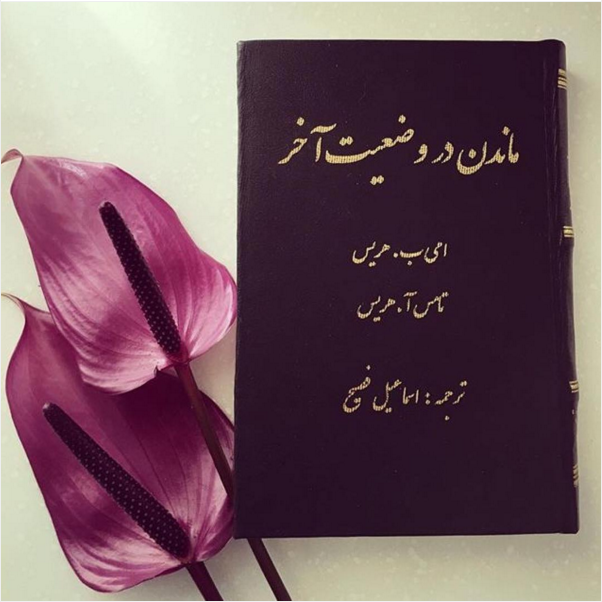 ماندن در وضعیت آخر
امی ب. هریس
تامس آ. هریس
ترجمه: اسماعیل فصیح